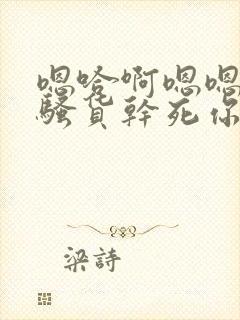 嗯哈啊嗯嗯
骚货幹死你
梁詩